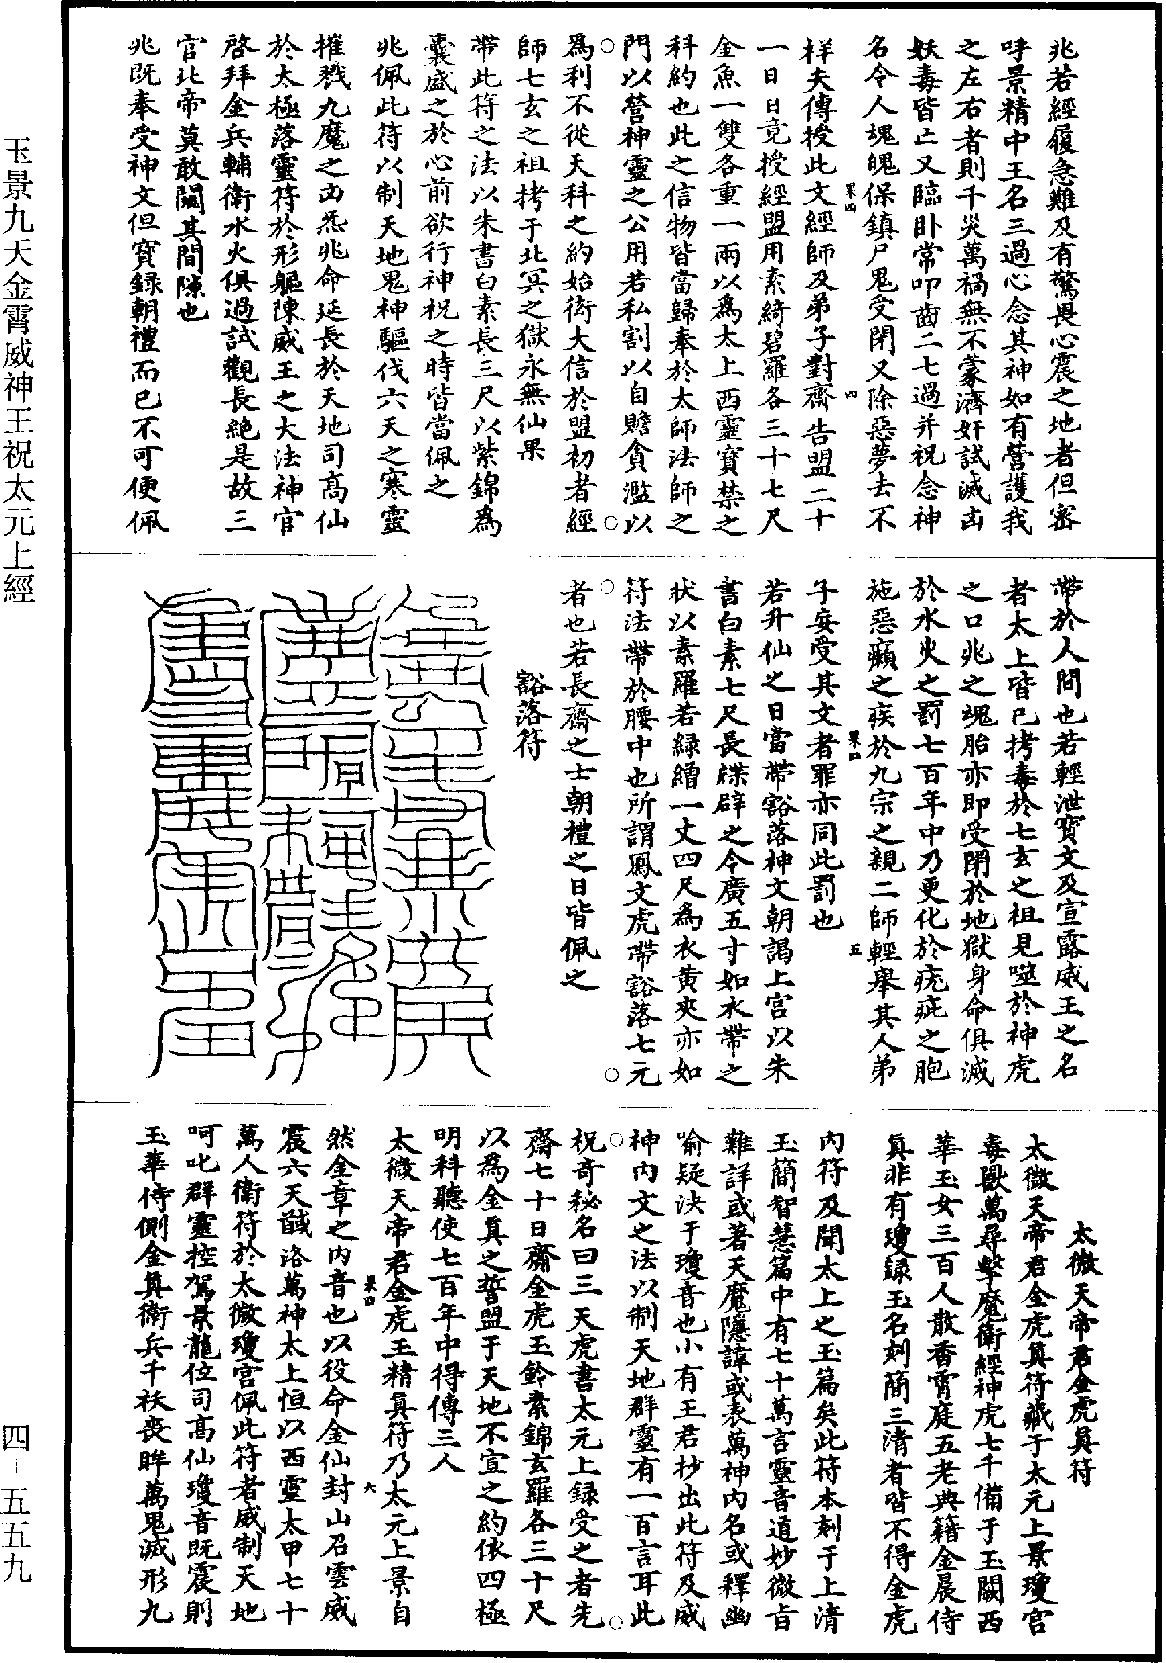 兆若經履急難及有驚畏心震之地者但密
呼景精中王名三過心念其神如有營護我
之左右者則千災萬禍無不蒙濟奸試滅凶
妖毒皆亡又臨卧常叩齒二七過并祝念神
名令人魂魄保鎮尸鬼受閉又除惡夢去不
祥夫傳授此文經師及弟子對齋告盟二十
一日日竟授經盟用素綺碧羅各三十七尺
金魚一雙各重一兩以爲太上西靈寶禁之
科約也此之信物皆當歸奉於太師法師之
門以營神靈之公用若私割以自贍貪濫以
爲利不從天科之約始衒大信於盟初者經
師七玄之祖拷于北冥之獄永無仙果
帶此符之法以朱書白素長三尺以紫錦爲
囊盛之於心前欲行神祝之時皆當佩之
兆佩此符以制天地鬼神驅伐六天之寒靈
摧戮九魔之凶炁兆命延長於天地司高仙
於太極落靈符於形軀陳威王之大法神官
啓拜金兵輔衛水火俱過試觀長絶是故三
官北帝莫敢闚其間隙也
兆既奉受神文但寶録朝禮而已不可便佩
帶於人間也若輕泄寶文及宣露威王之名
者太上皆已拷毒於七玄之祖見噬於神虎
之口兆之魂胎亦即受閉於地獄身命俱滅
於水火之罰七百年中乃更化於疣疵之胞
施惡癩之疾於九宗之親二師輕舉其人弟
子妄受其文者罪亦同此罰也
若升仙之日當帶豁落神文朝謁上宫以朱
書白素七尺長縩辟之令廣五寸如衣帶之
狀以素羅若緑繒一丈四尺爲衣黄夾亦如
符法帶於腰中也所謂鳳文虎帶豁落七元
者也若長齋之士朝禮之日皆佩之
豁落符
太微天帝君金虎真符
太微天帝君金虎真符藏于太元上景瓊宫
毒獸萬尋擊魔衛經神虎七千備于玉闕西
華玉女三百人散香霄庭五老典籍金晨侍
真非有瓊録玉名刻簡三清者皆不得金虎
内符及聞太上之玉篇矣此符本刻于上清
玉簡智慧篇中有七十萬言靈音道妙微旨
難詳或著天魔隱諱或表萬神内名或釋幽
喻疑決于瓊音也小有王君抄出此符及威
神内文之法以制天地群靈有一百言耳此
祝奇秘名曰三天虎書太元上録受之者先
齋七十日齎金虎玉鈴素錦玄羅各三十尺
以爲金真之誓盟于天地不宣之約依四極
明科聽使七百年中得傳三人
太微天帝君金虎玉精真符乃太元上景自
然金章之内音也以役命金仙封山召雲威
震六天馘洛萬神太上恒以西靈太甲七十
萬人衛符於太微瓊宫佩此符者威制天地
呵叱群靈控駕景龍位司高仙瓊音既震則
玉華侍側金真衛兵千祅喪眸萬鬼滅形九
玉景九天金霄威神王祝太元上經
四－五五九